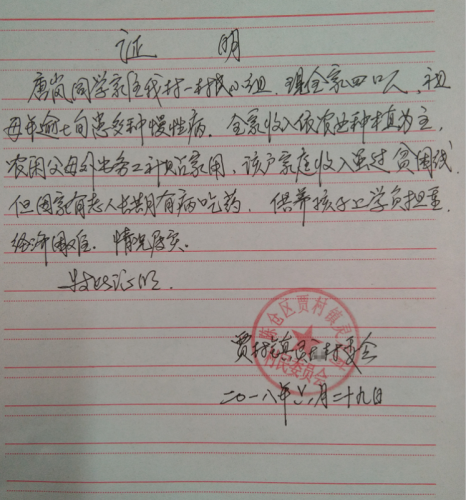 证 明
唐岚同学家住我村一村民小组，现全家四口人，祖
母年逾七旬患多种慢性病。全家收入依农业种植为主，
农闲父母外出务工补贴家用，该户家庭收入虽过贫困线，
但因家有老人长期有病吃药，供养孩子上学负担重，
经济困难。情况属实。
特此证明.
贾村镇 村委会
陈仓区贾村镇灵
村民委员会
二〇一八年 月二十九日